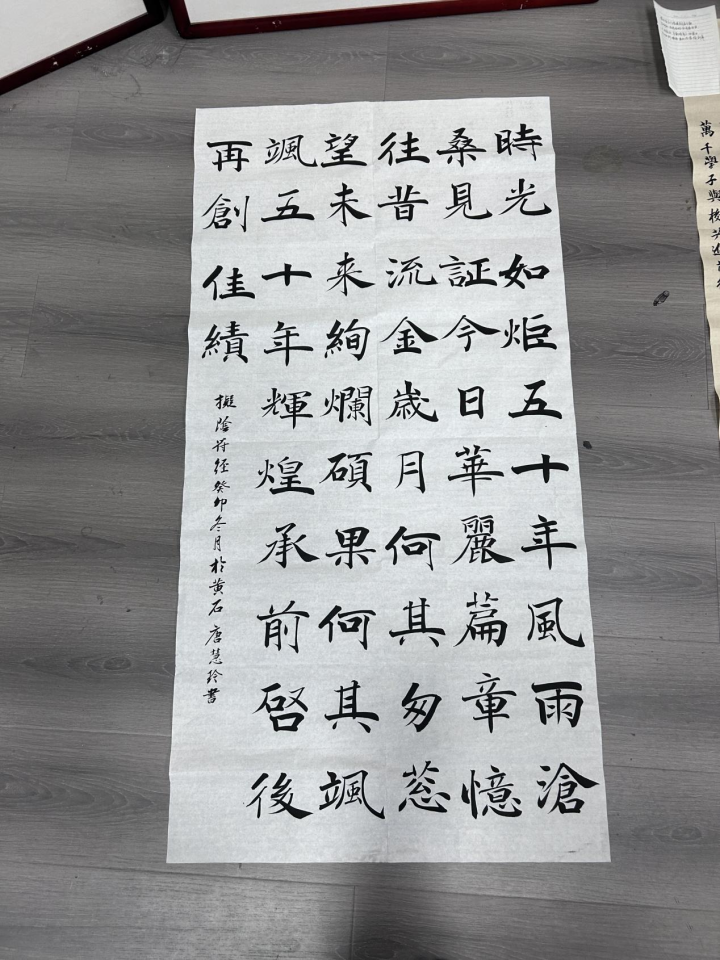 時光如炬五十年風雨滄
桑見証今日華麗篇章憶
往昔流金歲月何其匆蔥
望未来絢爛碩果何其颯
颯五十年輝煌承前啓後
再創佳績
擬陰符經癸卯冬月於黄石唐慧玲書
萬千學子與校共進